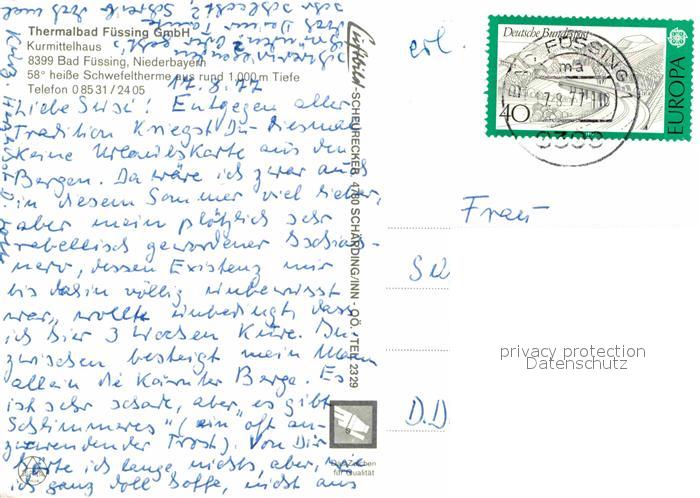 Thermalbad Füssing GmbH
Kurmittelhaus
8399 Bad Füssing, Niederbayern
58° heiße Schwefeltherme aus rund 1.000 m Tiefe
Telefon 0 85 31 / 24 05
17. 8. 77
Liebe Susi! Entgegen aller
Tradition kriegst Du diesmal
keine Urlaubskarte aus den
Bergen. Da wäre ich zwar auch
in diesem Sommer viel lieber,
aber mein plötzlich sehr
rebellisch gewordener Ischias-
nerv, dessen Existenz mir
bis dahin völlig unbewusst
war, wollte unbedingt, dass
ich hier 3 Wochen kure. In-
zwischen besteigt mein Mann
allein die Kärntner Berge. Es
ist sehr schade, aber „es gibt
Schlimmeres" (ein oft an-
zuwendender Trost). Von Dir
hörte ich lange nichts, aber, wie
ich ganz doll hoffe, nicht aus
Luftbild-SCHEURECKER 4780 SCHÄRDING/INN - OÖ., TEL. 2329
Das Zeichen
für Qualität
erl.
Deutsche Bundespost
40
EUROPA
FÜSSING
ma
Frau
D.D.
privacy protection
Datenschutz